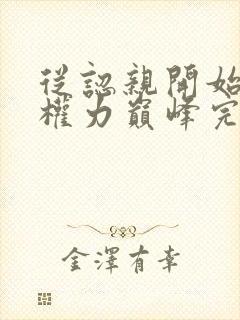 從認親開始
權力巔峰完
金澤有幸